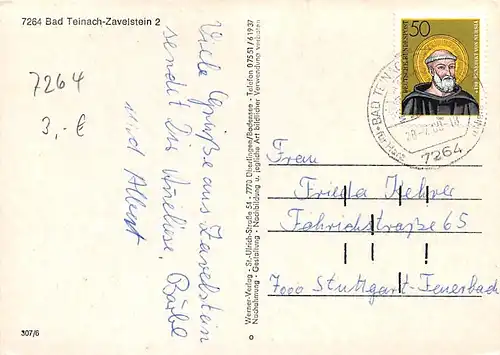 7264 Bad Teinach-Zavelstein 2
7264
3,-€
Viele Grüße aus Zavelstein
sendet Dir Anneliese, Bärbel
und Albert
Werner-Verlag - St.-Ulrich-Straße 54 - 7770 Überlingen/Bodensee - Telefon 07551/61937
Nachahmung - Gestaltung - Nachbildung u. jegliche Art bildlicher Verwendung verboten
50
BAD TEINACH
7264
Frau
Frieda Kehrer
Fährichstraße 65
7000 Stuttgart-Feuerbach
307/6